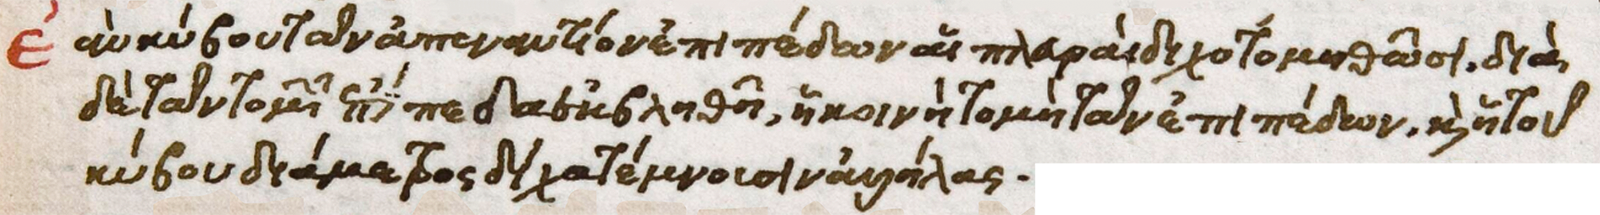 Ἐὰν κύβου τῶν ἀπεναντίον ἐπιπέδων αἱ πλευραὶ διχοτομηθῶσι, διὰ
δὲ τῶν τομῶν ἐπίπεδα ἐκβληθῇ, ἡ κοινὴ τομὴ τῶν ἐπιπέδων, κὴ ἡ τοῦ
κύβου διάμετρος δίχα τέμνουσιν ἀλλήλας.